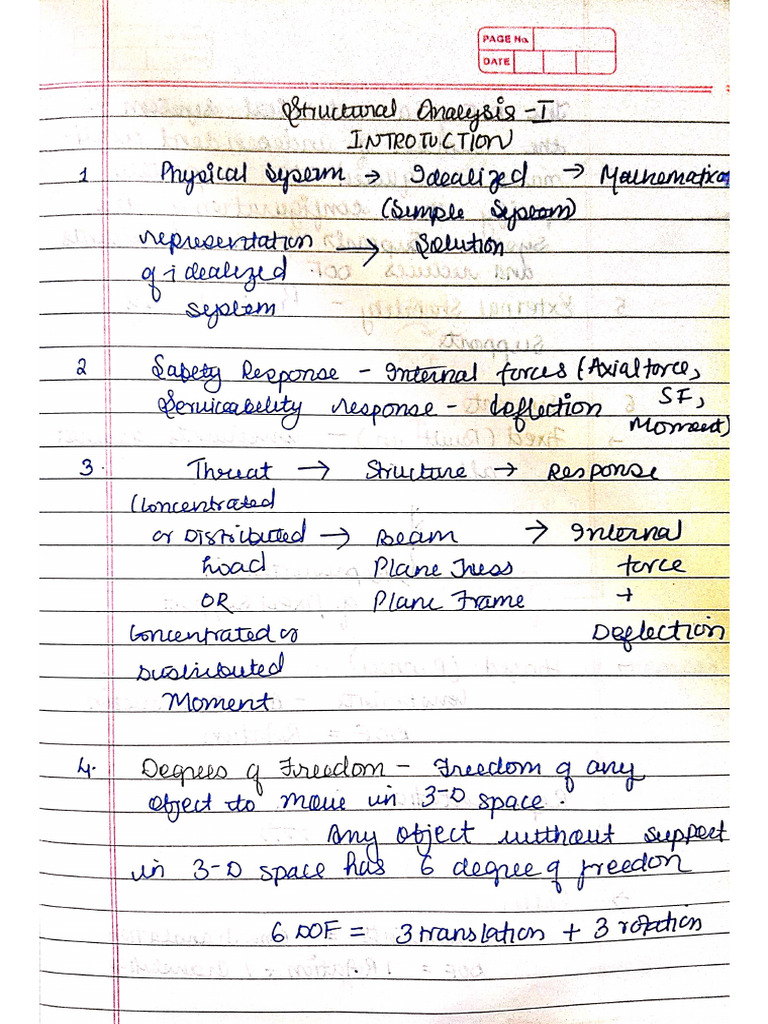 PAGE No.
DATE
Structural Analysis - I
INTROTUCTION
1 Physical System → Idealized → Mathematica
(Simple System)
representation → Solution
of idealized
system
2 Safety Response - Internal forces (Axial force,
Servicability response - Deflection SF,
Moment)
3. Threat → Structure → Response
(Concentrated
or Distributed → Beam → Internal
Load Plane Truss force
OR Plane Frame +
Concentrated or Deflection
Distributed
Moment
4. Degrees of Freedom - Freedom of any
object to move in 3-D space.
Any object without support
in 3-D space has 6 degree of freedon
6 DOF = 3 translation + 3 rotation